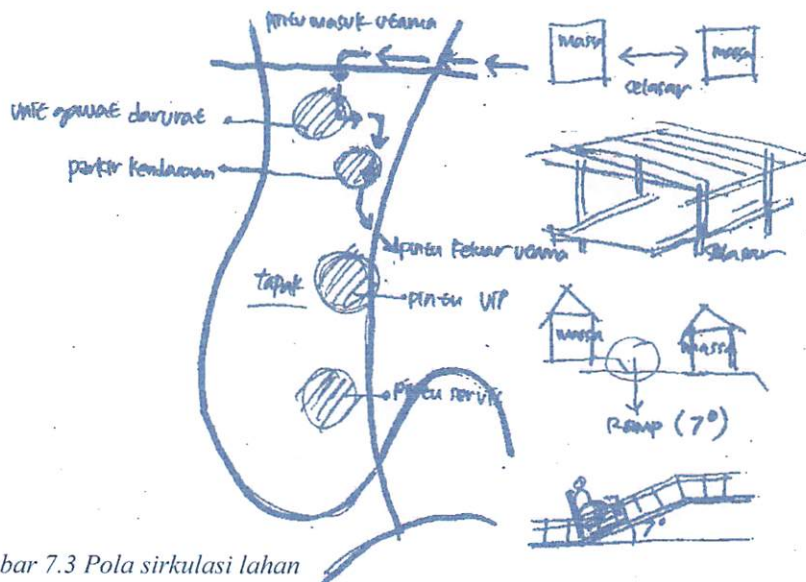 pintu masuk utama
unit gawat darurat
parkir kendaraan
pintu keluar utama
tapak
pintu VIP
pintu servis
massa
massa
selasar
selasar
massa
massa
Ramp (7°)
7°
bar 7.3 Pola sirkulasi lahan